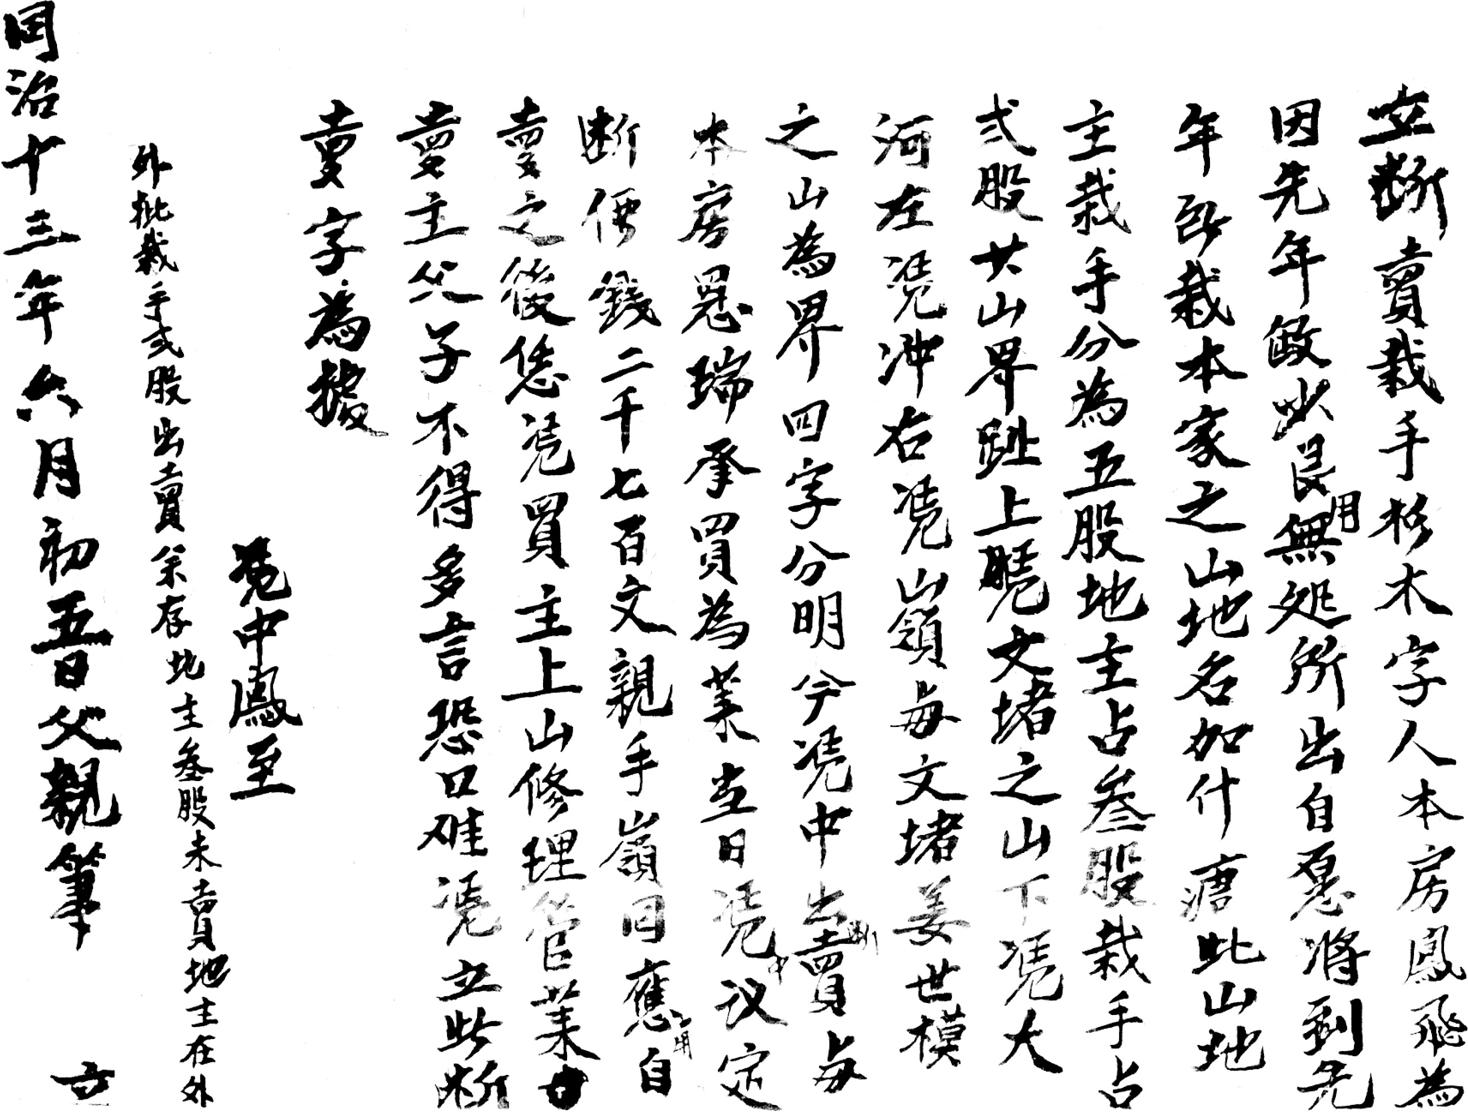 立断賣栽手杉木字人本房鳳飛為
因先年缺少艮用無処所出自愿將到先
年所栽本家之山地名加什塘此山地
主栽手分為五股地主占叁股栽手占
弍股其山界趾上凴文堵之山下凴大
河左凴冲右凴山嶺每文堵姜世模
之山為界四字分明今凴中出断賣每
本房恩瑞承買為業當日凴中议定
断價錢二千七百文親手嶺回應用自
賣之後恁凴買主上山修理管業
賣主父子不得多言恐口难凴立此断
賣字為據
凴中鳳至
外批栽手弍股出賣余存地主叁股未賣地主在外
同治十三年六月初五日父親筆 立